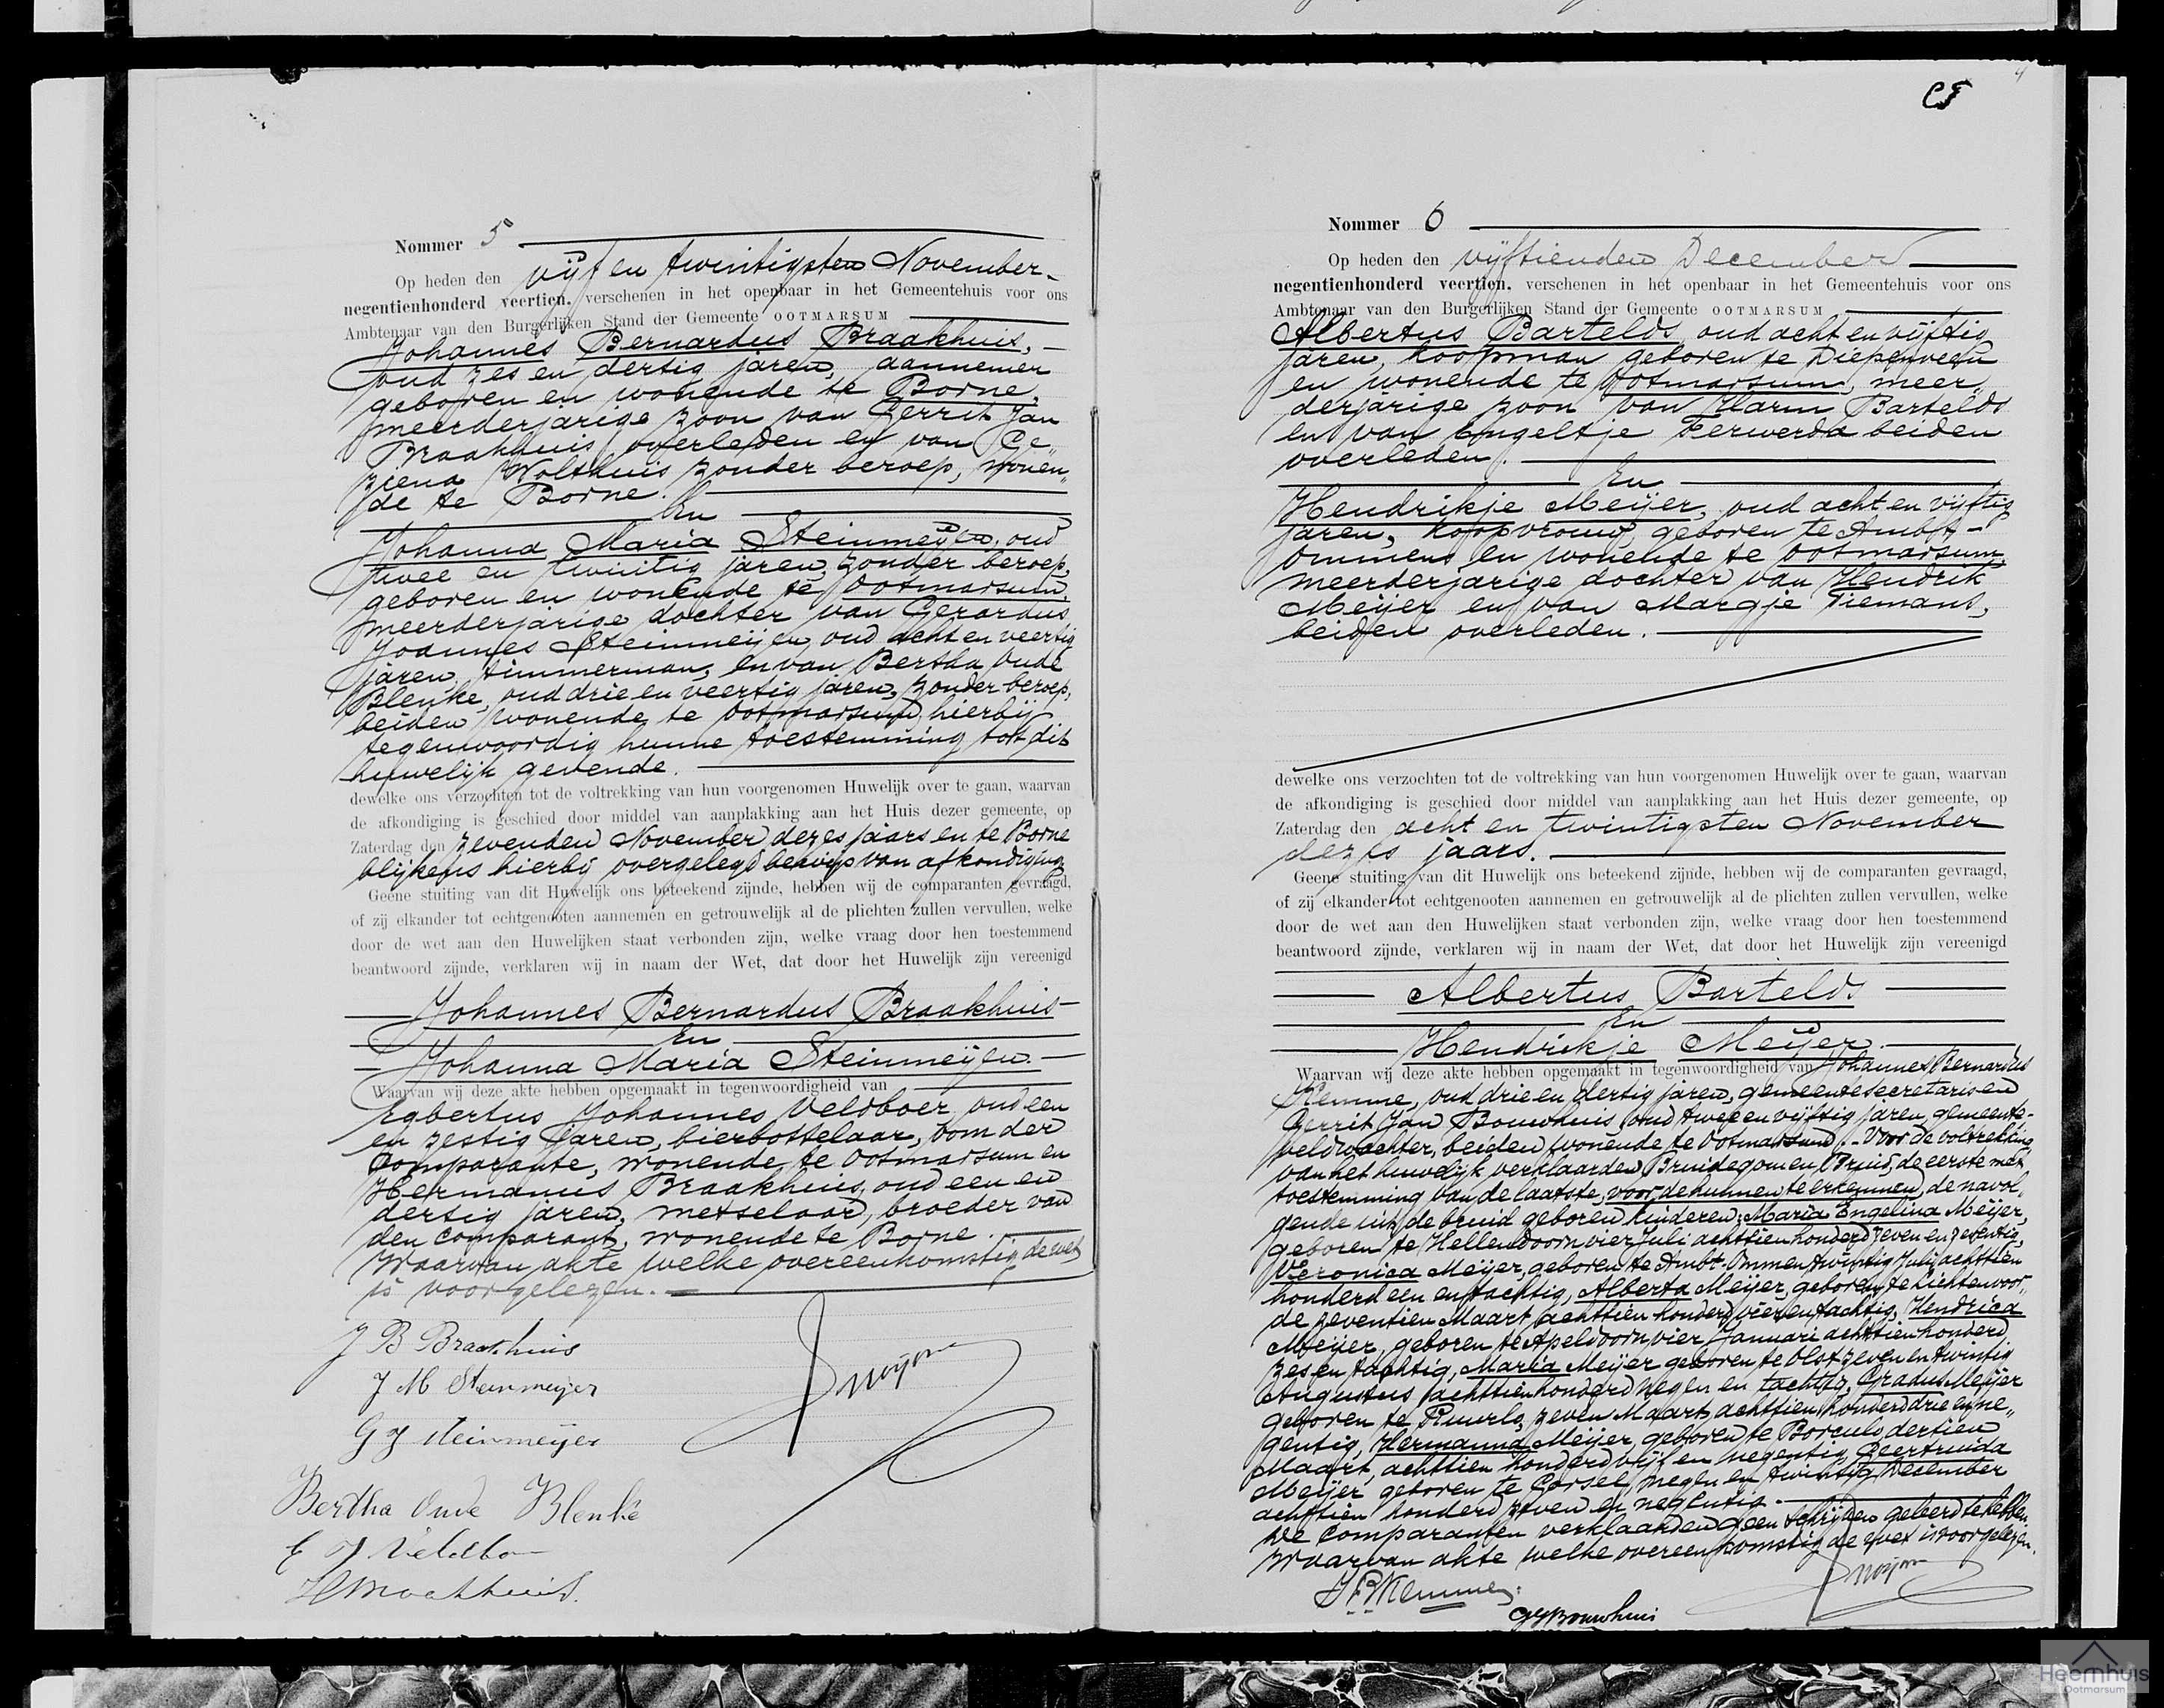 Nommer 5
Op heden den vijf en twintigsten November
negentienhonderd veertien, verschenen in het openbaar in het Gemeentehuis voor ons
Ambtenaar van den Burgerlijken Stand der Gemeente OOTMARSUM
Johannes Bernardus Braakhuis,
oud zes en dertig jaren, aannemer
geboren en wonende te Borne,
meerderjarige zoon van Gerrit Jan
Braakhuis overleden en van Ge„
ziena Wolthuis zonder beroep, wonen„
de te Borne.
En
Johanna Maria Steinmeijer, oud
twee en twintig jaren, zonder beroep,
geboren en wonende te Ootmarsum,
meerderjarige dochter van Gerardus
Joannes Steinmeijer, oud acht en veertig
jaren, timmerman, en van Bertha Oude
Blenke, oud drie en veertig jaren, zonder beroep,
beiden wonende te Ootmarsum, hierbij
tegenwoordig hunne toestemming tot dit
huwelijk gevende.
dewelke ons verzochten tot de voltrekking van hun voorgenomen Huwelijk over te gaan, waarvan
de afkondiging is geschied door middel van aanplakking aan het Huis dezer gemeente, op
Zaterdag den zevenden November dezes jaars en te Borne
blijkens hierbij overgelegd bewijs van afkondiging.
Geene stuiting van dit Huwelijk ons beteekend zijnde, hebben wij de comparanten gevraagd,
of zij elkander tot echtgenooten aannemen en getrouwelijk al de plichten zullen vervullen, welke
door de wet aan den Huwelijken staat verbonden zijn, welke vraag door hen toestemmend
beantwoord zijnde, verklaren wij in naam der Wet, dat door het Huwelijk zijn vereenigd
Johannes Bernardus Braakhuis
En
Johanna Maria Steinmeijer.
Waarvan wij deze akte hebben opgemaakt in tegenwoordigheid van
Egbertus Johannes Veldboer oud een
en zestig jaren, bierbottelaar, oom der
Comparante, wonende te Ootmarsum en
Hermanus Braakhuis, oud een en
dertig jaren, metselaar, broeder van
den comparant, wonende te Borne.
Waarvan akte welke overeenkomstig de wet
is voorgelezen.
J B Braakhuis
J M Steinmeijer
G J Steinmeijer
Bertha Oude Blenke
E J Veldboer
H Braakhuis.
Nommer 6
Op heden den vijftienden December
negentienhonderd veertien, verschenen in het openbaar in het Gemeentehuis voor ons
Ambtenaar van den Burgerlijken Stand der Gemeente OOTMARSUM
Albertus Bartelds oud acht en vijftig
jaren, koopman geboren te Diepenveen
en wonende te Ootmarsum, meer„
derjarige zoon van Harm Bartelds
en van Engeltje Ferwerda beiden
overleden.
En
Hendrikje Meijer, oud acht en vijftig
jaren, koopvrouw, geboren te Ambt-
Ommen, en wonende te Ootmarsum,
meerderjarige dochter van Hendrik
Meijer en van Margje Tiemans,
beiden overleden.
dewelke ons verzochten tot de voltrekking van hun voorgenomen Huwelijk over te gaan, waarvan
de afkondiging is geschied door middel van aanplakking aan het Huis dezer gemeente, op
Zaterdag den acht en twintigsten November
dezes jaars.
Geene stuiting van dit Huwelijk ons beteekend zijnde, hebben wij de comparanten gevraagd,
of zij elkander tot echtgenooten aannemen en getrouwelijk al de plichten zullen vervullen, welke
door de wet aan den Huwelijken staat verbonden zijn, welke vraag door hen toestemmend
beantwoord zijnde, verklaren wij in naam der Wet, dat door het Huwelijk zijn vereenigd
Albertus Bartelds
En
Hendrikje Meijer.
Waarvan wij deze akte hebben opgemaakt in tegenwoordigheid van Johannes Bernardus
Kemme, oud drie en dertig jaren, gemeentesecretaris en
Gerrit Jan Bouwhuis oud twee en vijftig jaren, gemeente-
veldwachter, beiden wonende te Ootmarsum. - Voor de voltrekking
van het huwelijk verklaarden Bruidegom en Bruid, de eerste met
toestemming van de laatste, voor de hunnen te erkennen, de navol„
gende uit de bruid geboren kinderen: Maria Engelina Meijer,
geboren te Hellendoorn vier Juli achttienhonderd zeven en zeventig,
Veronica Meijer, geboren te Ambt-Ommen twintig Julij achttien
honderd een en tachtig, Alberta Meijer, geboren te Lichtenvoor„
de zeventien Maart achttien honderd vier en tachtig, Hendrica
Meijer, geboren te Apeldoorn vier Januari achttienhonderd
zes en tachtig, Maria Meijer geboren te Olst zeven en twintig
Augustus achttienhonderd negen en tachtig, Gradus Meijer
geboren te Ruurlo, zeven Maart achttien honderd drie en ne„
gentig, Hermanna Meijer, geboren te Borculo dertien
Maart, achttien honderd vijf en negentig, Geertruida
Meijer geboren te Gorssel, negen en twintig December
achttien honderd zeven en negentig.
De comparanten verklaarden geen schrijven geleerd te hebben.
Waarvan akte welke overeenkomstig de wet is voorgelezen.
J B Kemme
G J Bouwhuis
Heemhuis
Ootmarsum